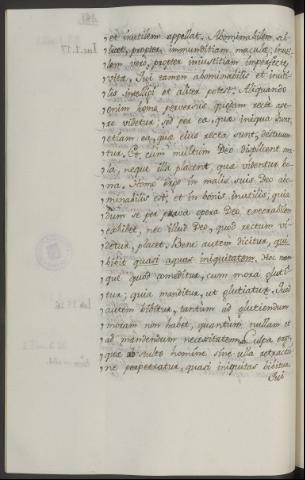 et inutilem appellat. Abominabilem, sci-
licet, propter immunditiam, maculæ; inuti-
lem vero, propter iniustitiam imperfectæ
vitæ. Qui tamen abominabilis et inuti-
lis intelligi et aliter potest. Aliquando
enim homo perversus quædam recta age-
re videtur sed per ea, quæ iniqua sunt,
etiam ea, quæ eius recta sunt, destruun-
tur. Et cum multum Deo displicent ma-
la, neque illa placent, quæ videntur bo-
na. Homo ergo in malis suis Deo abo-
minabilis est, et in bonis inutilis; quia
dum se per prava opera Deo execrabilem
exhibet, nec illud Deo, quod rectum vi-
detur, placet. Bene autem dicitur, qui
bibit quasi aquas iniquitatem. Hoc nam-
que quod comeditur, cum mora gluti-
tur; quia manditur, ut glutiatur. Quod
autem bibitur, tantum ad glutiendum
moram non habet, quantum nullam et
ad mandendum necessitatem. Culpa ergo,
quæ ab stulto homine sine ulla retracta-
ne perpetratur, quasi iniquitas bibitur
Qui